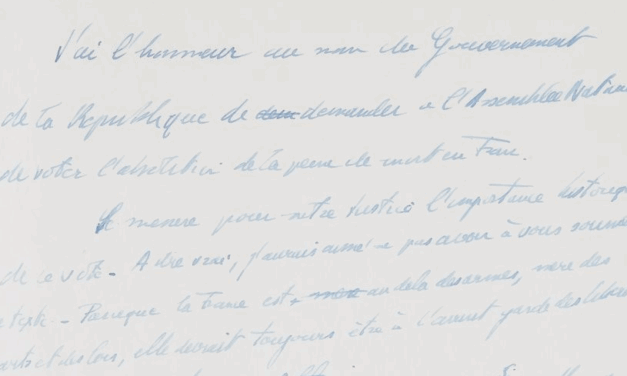 J'ai l'honneur au nom du Gouvernement
de la République de demander à l'Assemblée Nation
de voter l'abolition de la peine de mort en France.
Je mesure pour notre Justice l'importance historiq
de ce vote - A dire vrai, j'aurais aimé ne pas avoir à vous soume
texte - Parce que la France est, au delà des armes, mère des
arts et des lois, elle devrait toujours être à l'avant garde des